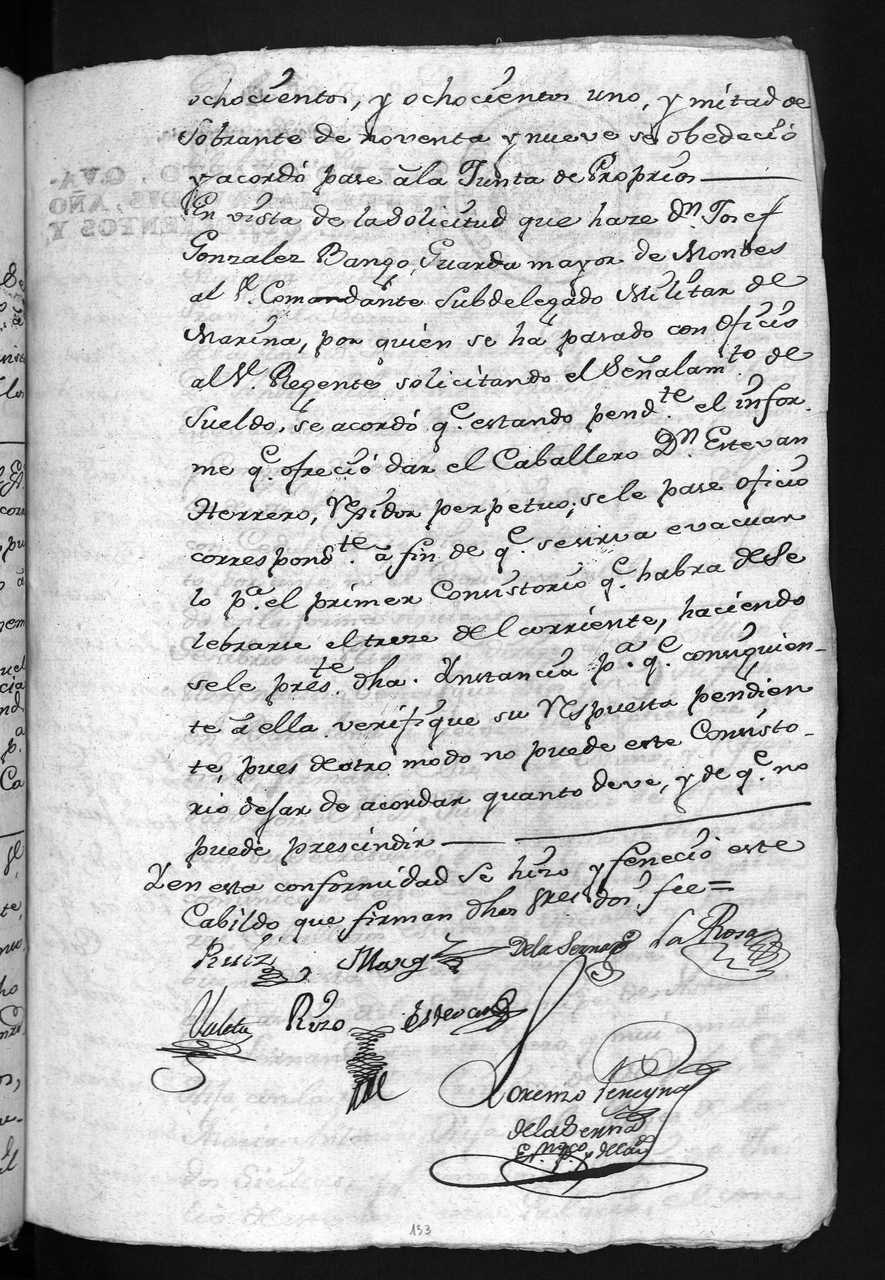 ochocientos, y ochocientos uno, y mitad de
Sobrante de noventa y nueve se obedeció
y acordó pase á la Junta de Proprios
En vista de la solicitud que haze Dn. Josef
Gonzalez Bango, Guarda mayor de Montes
al Sr. Comandante Subdelegado Militar de
Marina, por quien se ha pasado con oficio
al Sr. Regente solicitando el Señalamto. de
Sueldo, se acordó qe. estando pendte. el infor-
me qe. ofreció dar el Caballero Dn. Estevan
Herrero, Rexidor perpetuo, se le pase oficio
correspondte. á fin de qe. se sirva evacuar
lo pa. el primer Consistorio qe. habra de Se
lebrarse el treze del corriente, haciendo
sele preste. dha. Instancia pa. qe. consiguien-
te á ella verifique su Respuesta pendien
te, pues de otro modo no puede este Consisto-
rio dejar de acordar quanto deve, y de qe. no
puede prescindir
Y en esta conformidad se hizo y feneció este
Cabildo que firman dhos Sres. doi fee=
Ruiz Marqz De la Serna La Rosa
Rizo Estevan
Lorenzo Pereyra
de la Serna
133